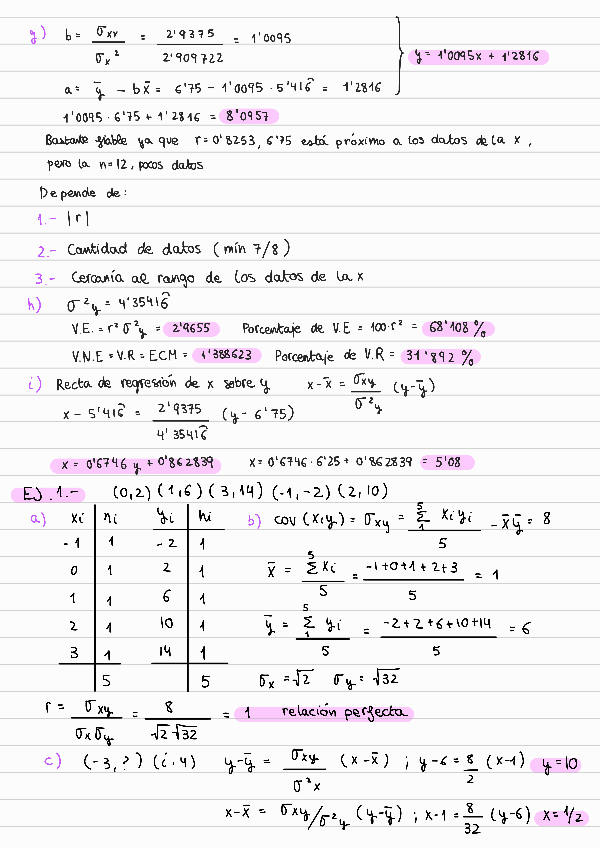 g) b = σxy / σx² = 2'9375 / 2'909722 = 1'0095
y = 1'0095x + 1'2816
a = ȳ - bx̄ = 6'75 - 1'0095 · 5'416̂ = 1'2816
1'0095 · 6'75 + 1'2816 = 8'0957
Bastante fiable ya que r = 0'8253, 6'75 está próximo a los datos de la x,
pero la n=12, pocos datos
Depende de:
1.- |r|
2.- Cantidad de datos (mín 7/8)
3.- Cercanía al rango de los datos de la x
h) σ²y = 4'35416̂
V.E. = r² σ²y = 2'9655 Porcentaje de V.E = 100·r² = 68'108 %
V.N.E = V.R = ECM = 1'388623 Porcentaje de V.R = 31'892 %
i) Recta de regresión de x sobre y x-x̄ = σxy / σ²y (y-ȳ)
x - 5'416̂ = 2'9375 / 4'35416̂ (y - 6'75)
x = 0'6746 y + 0'862839 x = 0'6746 · 6'25 + 0'862839 = 5'08
EJ. 1.- (0,2) (1,6) (3,14) (-1,-2) (2,10)
a) xi ni yi ni b) cov (x,y) = σxy = Σ₁⁵ xi yi / 5 - x̄ȳ = 8
-1 1 -2 1
0 1 2 1 x̄ = Σ⁵ xi / 5 = -1+0+1+2+3 / 5 = 1
1 1 6 1
2 1 10 1 ȳ = Σ₁⁵ yi / 5 = -2+2+6+10+14 / 5 = 6
3 1 14 1
5 5 σx = √2 σy = √32
r = σxy / σxσy = 8 / √2 √32 = 1 relación perfecta
c) (-3,?) (¿,4) y-ȳ = σxy / σ²x (x-x̄) ; y-6 = 8/2 (x-1) y=10
x-x̄ = σxy/σ²y (y-ȳ) ; x-1 = 8/32 (y-6) x=1/2